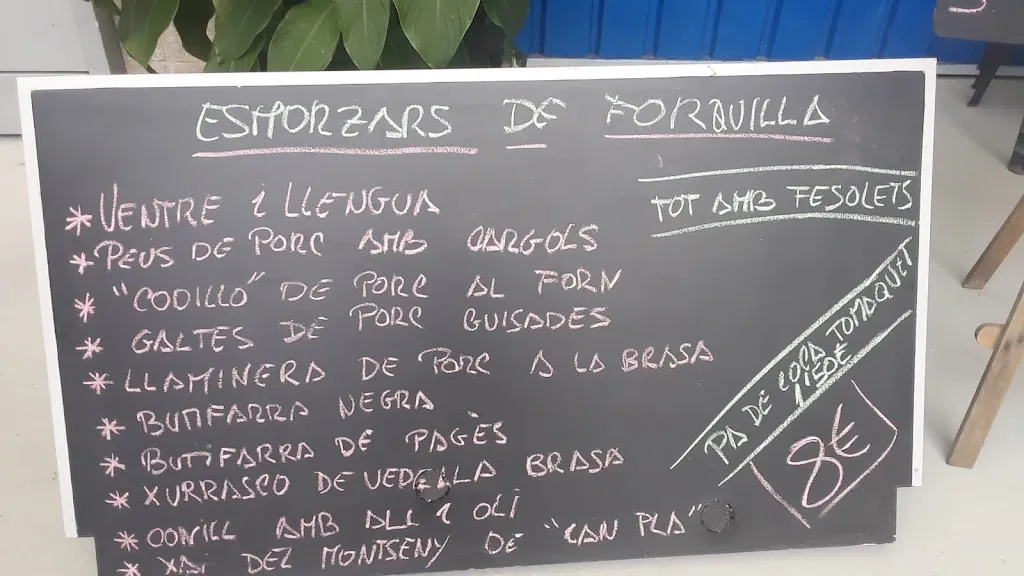 ESMORZARS DE FORQUILLA
TOT AMB FESOLETS
* VENTRE i LLENGUA
* PEUS DE PORC AMB CARGOLS
* "CODILLO" DE PORC AL FORN
* GALTES DE PORC GUISADES
* LLAMINERA DE PORC A LA BRASA
* BUTIFARRA NEGRA
* BUTIFARRA DE PAGÈS
* XURRASCO DE VEDELLA BRASA
* CONILL AMB ALL i OLI
* XAI DEL MONTSENY DE "CAN PLA"
PA DE COCA TOMAQUET
8€